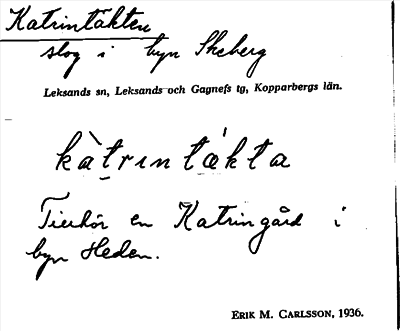 Katrintäkten
slog i byn Skeberg
Leksands sn, Leksands och Gagnefs tg, Kopparbergs län.
kàtrıntákta
Tillhör en Katringård i
byn Heden.
ERIK M. CARLSSON, 1936.